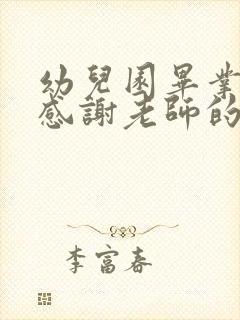 幼兒園畢業
感謝老師的
李富春